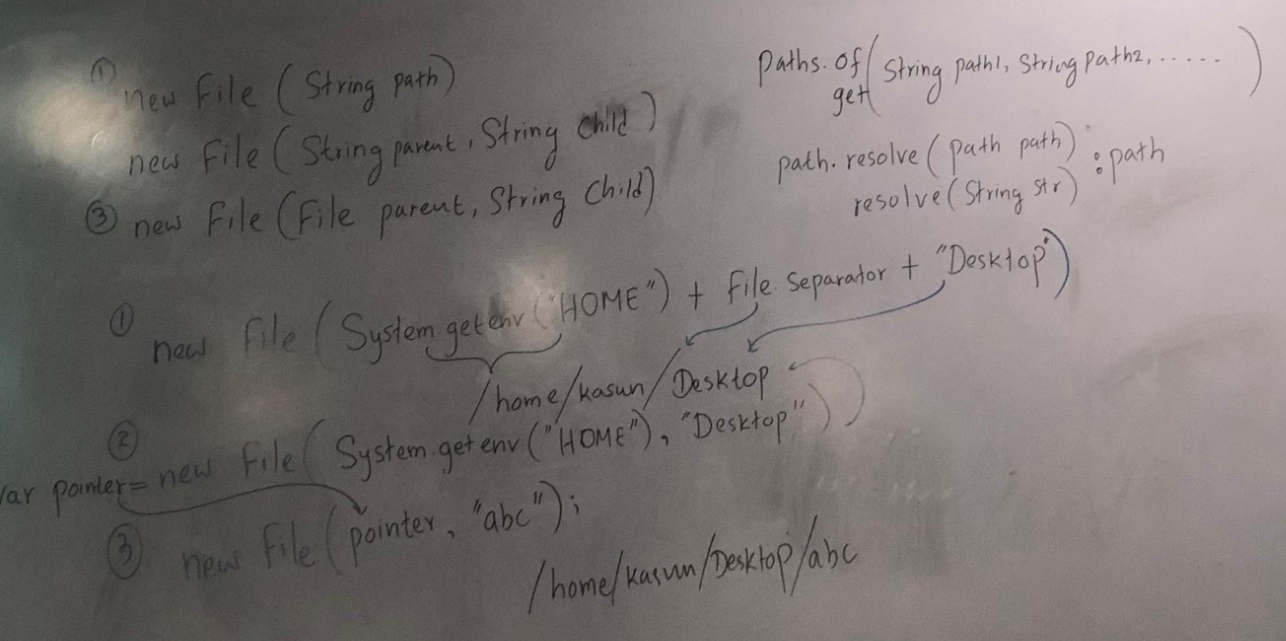 ① new File (String path)
new File (String parent, String child)
③ new File (File parent, String child)
Paths.of(String path1, String path2, ......)
get
path.resolve(path path) : path
resolve(String str)
① new File (System.getenv("HOME") + File.separator + "Desktop")
/home/kasun/Desktop
② var pointer = new File (System.getenv("HOME"), "Desktop")
③ new File (pointer, "abc");
/home/kasun/Desktop/abc